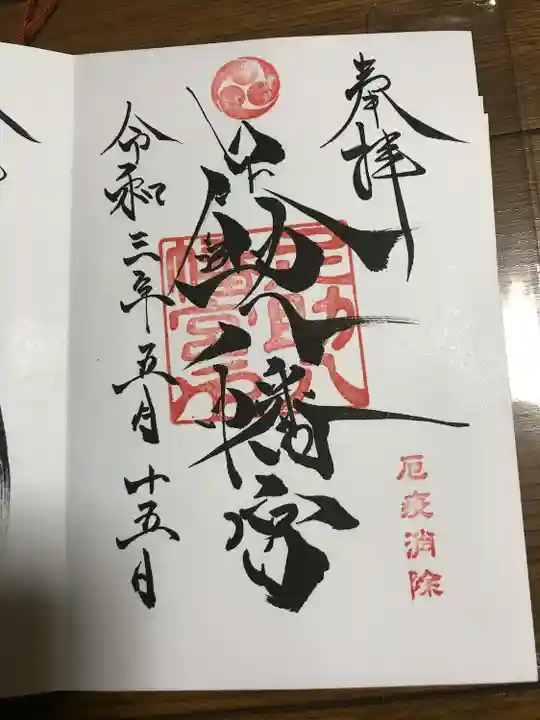 奉拝
八幡宮
令和三年五月十五日
厄疫消除